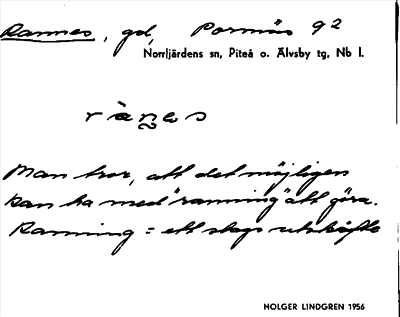 Rannes, gd, Pormäs 92
Norrfjärdens sn, Piteå o. Älvsby tg, Nb l.
Man tror, att det möjligen
kan ha med "ranning" att göra.
Ranning = ett slags utskäfte
HOLGER LINDGREN 1956